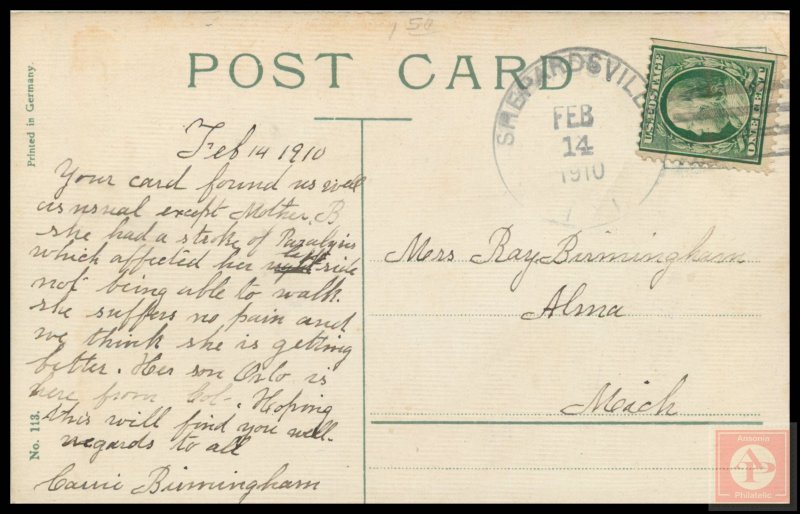 1 50
POST CARD
Printed in Germany.
No. 113.
SHEPARDSVILLE
FEB
14
1910
U.S. POSTAGE
ONE CENT
Feb 14 1910
Your card found us well
as usual except Mother B
she had a stroke of Paralysis
which affected her left side
not being able to walk.
she suffers no pain and
we think she is getting
better. Her son Orlo is
here from Col-. Hoping
this will find you well-
regards to all
Carrie Birmingham
Mrs Ray Birmingham
Alma
Mich
Ansonia
AP
Philatelic